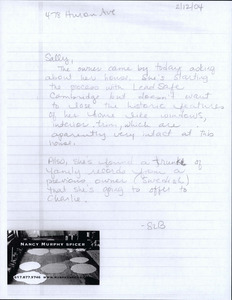 47R Huron Ave 2/12/04
Sally,
The owner came by today asking
about her house. She's starting
the process with Lead Safe
Cambridge but doesn't want
to lose the historic features
of her home like windows,
interior trim, which are
apparently very intact at this
house.
Also, she's found a trunk of
family records from a
previous owner (Swedish)
that she's going to offer to
Charlie.
-SLB
NANCY MURPHY SPICER